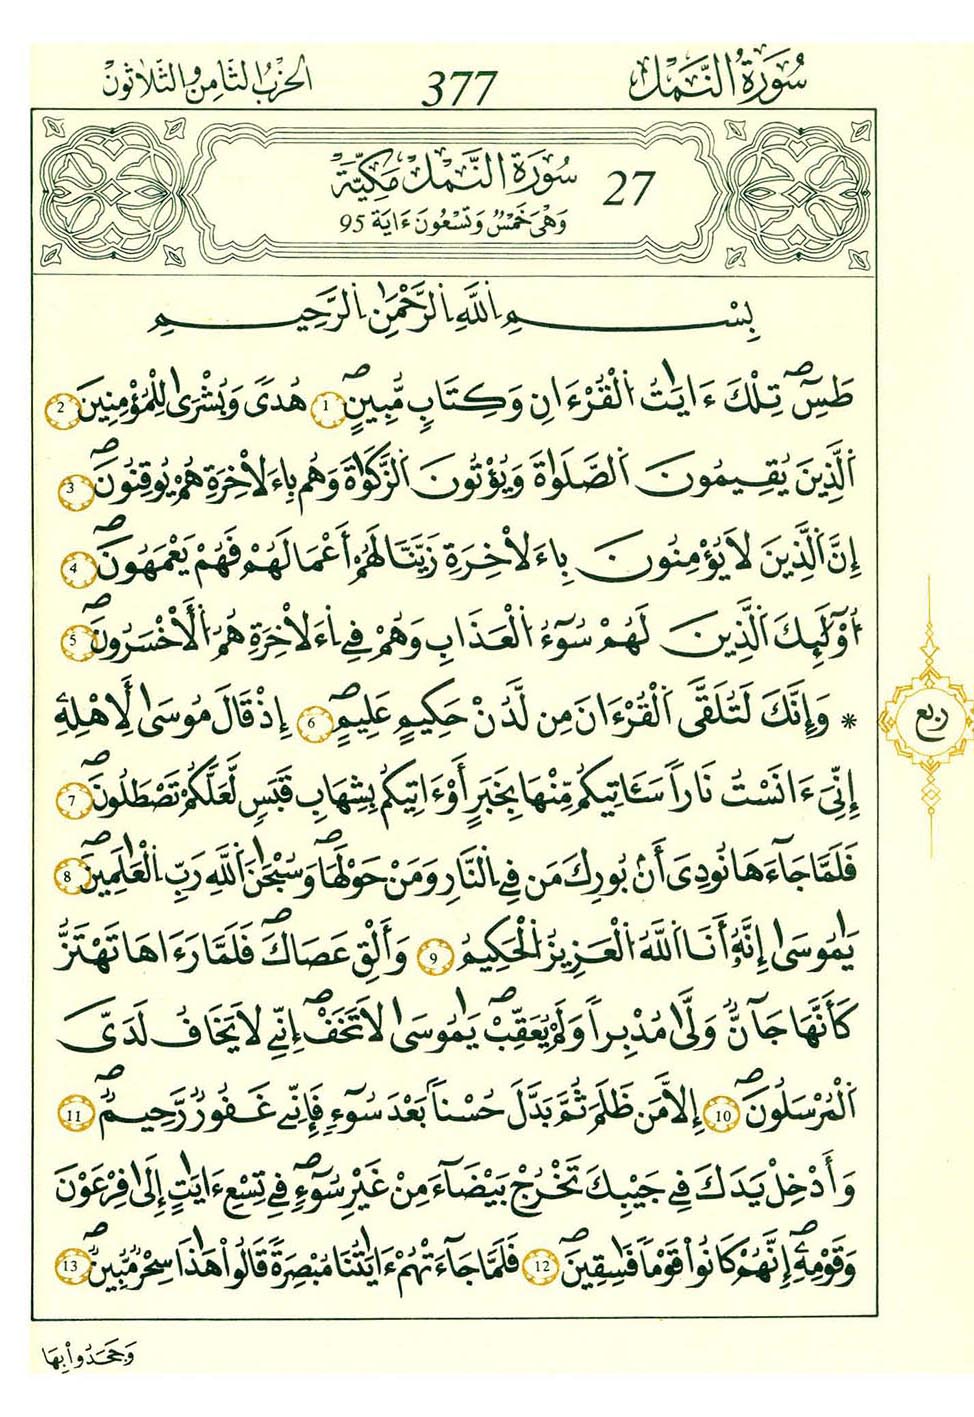 سُورَةُ النَّمْلِ 377 الحِزْبُ الثَّامِنُ وَالثَّلَاثُونَ
27 سُورَةُ النَّمْلِ مَكِّيَّةٌ
وَهْىَ خَمْسٌ وَتِسْعُونَ ءَايَةً 95
بِسْمِ اِللَّهِ اِلرَّحْمَٰنِ اِلرَّحِيمِ
طَسِٓۖ تِلْكَ ءَايَٰتُ اُلْقُرْءَانِ وَكِتَابٍ مُّبِينٍۖ 1 هُدىً وَبُشْرَىٰ لِلْمُؤْمِنِينَ 2
اَلَّذِينَ يُقِيمُونَ اَلصَّلَوٰةَ وَيُؤْتُونَ اَلزَّكَوٰةَ وَهُم بِاءَلَاْخِرَةِ هُمْ يُوقِنُونَۖ 3
إِنَّ اَلَّذِينَ لَا يُؤْمِنُونَ بِاءَلَاْخِرَةِ زَيَّنَّا لَهُمْ أَعْمَالَهُمْ فَهُمْ يَعْمَهُونَۖ 4
أُوْلَٰٓئِكَ اَلَّذِينَ لَهُمْ سُوٓءُ اُلْعَذَابِ وَهُمْ فِے اِءَلَاْخِرَةِ هُمُ اُلْأَخْسَرُونَۖ 5
* وَإِنَّكَ لَتُلَقَّى اَلْقُرْءَانَ مِن لَّدُنْ حَكِيمٍ عَلِيمٍۖ 6 إِذْ قَالَ مُوسَىٰ لِأَهْلِهِۦٓ
إِنِّىَ ءَانَسْتُ نَاراً سَـَٔاتِيكُم مِّنْهَا بِخَبَرٍ أَوْ ءَاتِيكُم بِشِهَابِ قَبَسٍ لَّعَلَّكُمْ تَصْطَلُونَۖ 7
فَلَمَّا جَآءَهَا نُودِىَ أَنۢ بُورِكَ مَن فِے اِلنَّارِ وَمَنْ حَوْلَهَاۖ وَسُبْحَٰنَ اَللَّهِ رَبِّ اِلْعَٰلَمِينَۖ 8
يَٰمُوسَىٰ إِنَّهُۥٓ أَنَا اَللَّهُ اُلْعَزِيزُ اُلْحَكِيمُ 9 وَأَلْقِ عَصَاكَۖ فَلَمَّا رَءَاهَا تَهْتَزُّ
كَأَنَّهَا جَآنٌّ وَلَّىٰ مُدْبِراً وَلَمْ يُعَقِّبْۖ يَٰمُوسَىٰ لَا تَخَفْۖ إِنِّے لَا يَخَافُ لَدَىَّ
اَلْمُرْسَلُونَۖ 10 إِلَّا مَن ظَلَمَ ثُمَّ بَدَّلَ حُسْناً بَعْدَ سُوٓءٍ فَإِنِّے غَفُورٌ رَّحِيمٌۖ 11
وَأَدْخِلْ يَدَكَ فِے جَيْبِكَ تَخْرُجْ بَيْضَآءَ مِنْ غَيْرِ سُوٓءٍۖ فِے تِسْعِ ءَايَٰتٍ إِلَىٰ فِرْعَوْنَ
وَقَوْمِهِۦٓۖ إِنَّهُمْ كَانُواْ قَوْماً فَٰسِقِينَۖ 12 فَلَمَّا جَآءَتْهُمْ ءَايَٰتُنَا مُبْصِرَةً قَالُواْ هَٰذَا سِحْرٌ مُّبِينٌۖ 13
ربع
وَجَحَدُواْ بِهَا